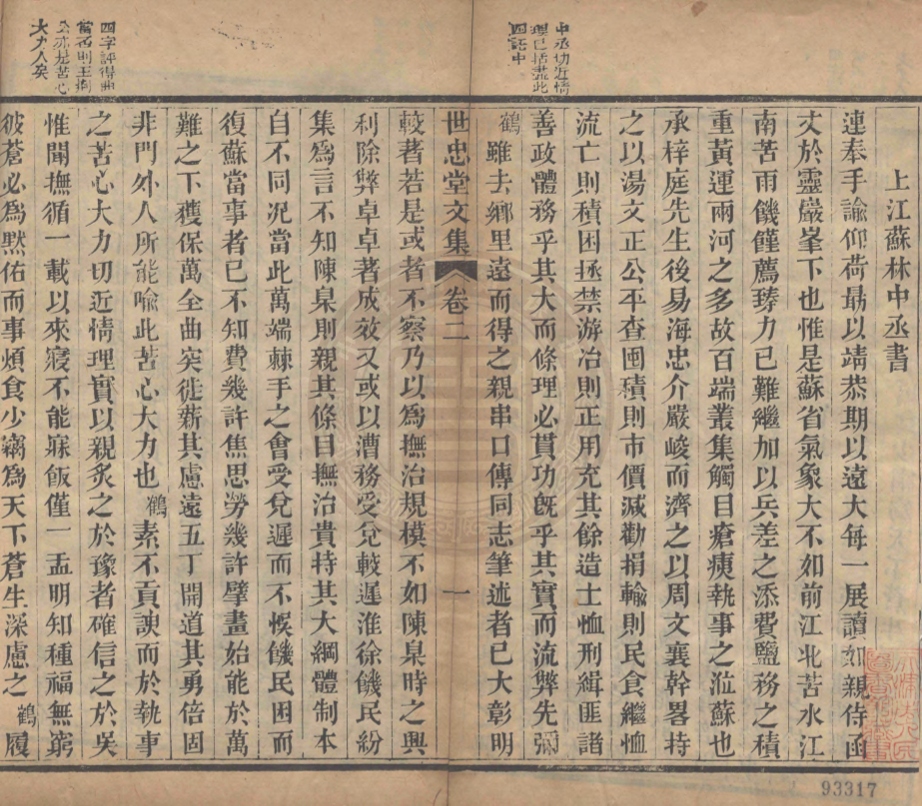 上江蘇林中丞書
連奉手諭仰荷勗以靖恭期以遠大每一展讀如親侍函
丈於靈巖峯下也惟是蘇省氣象大不如前江北苦水江
南苦雨饑饉薦臻力已難繼加以兵差之添費鹽務之積
重黃運兩河之多故百端叢集觸目瘡痍執事之涖蘇也
承梓庭先生後易海忠介嚴峻而濟之以周文襄幹畧持
之以湯文正公平查囤積則市價減勸捐輸則民食繼恤
流亡則積困拯禁游冶則正用充其餘造士恤刑緝匪諸
善政體務乎其大而條理必貫功旣乎其實而流弊先彌
鶴雖去鄉里遠而得之親串口傳同志筆述者已大彰明
中丞切近情
理已括盡此
四語中
世忠堂文集
卷二
一
較著若是或者不察乃以爲撫治規模不如陳臬時之興
利除弊卓卓著成效又或以漕務受兌較遲淮徐饑民紛
集爲言不知陳臬則親其條目撫治貴持其大綱體制本
自不同況當此萬端棘手之會受兌遲而不悞饑民困而
復蘇當事者已不知費幾許焦思勞幾許擘畫始能於萬
難之下獲保萬全曲突徙薪其慮遠五丁開道其勇倍固
非門外人所能喩此苦心大力也鶴素不貢諛而於執事
之苦心大力切近情理實以親炙之於豫者確信之於吳
惟聞撫循一載以來寢不能寐飯僅一盂明知種福無窮
彼蒼必爲默佑而事煩食少竊爲天下蒼生深慮之鶴履
四字評得曲
當否則王荆
公亦是苦心
大力人矣
93317